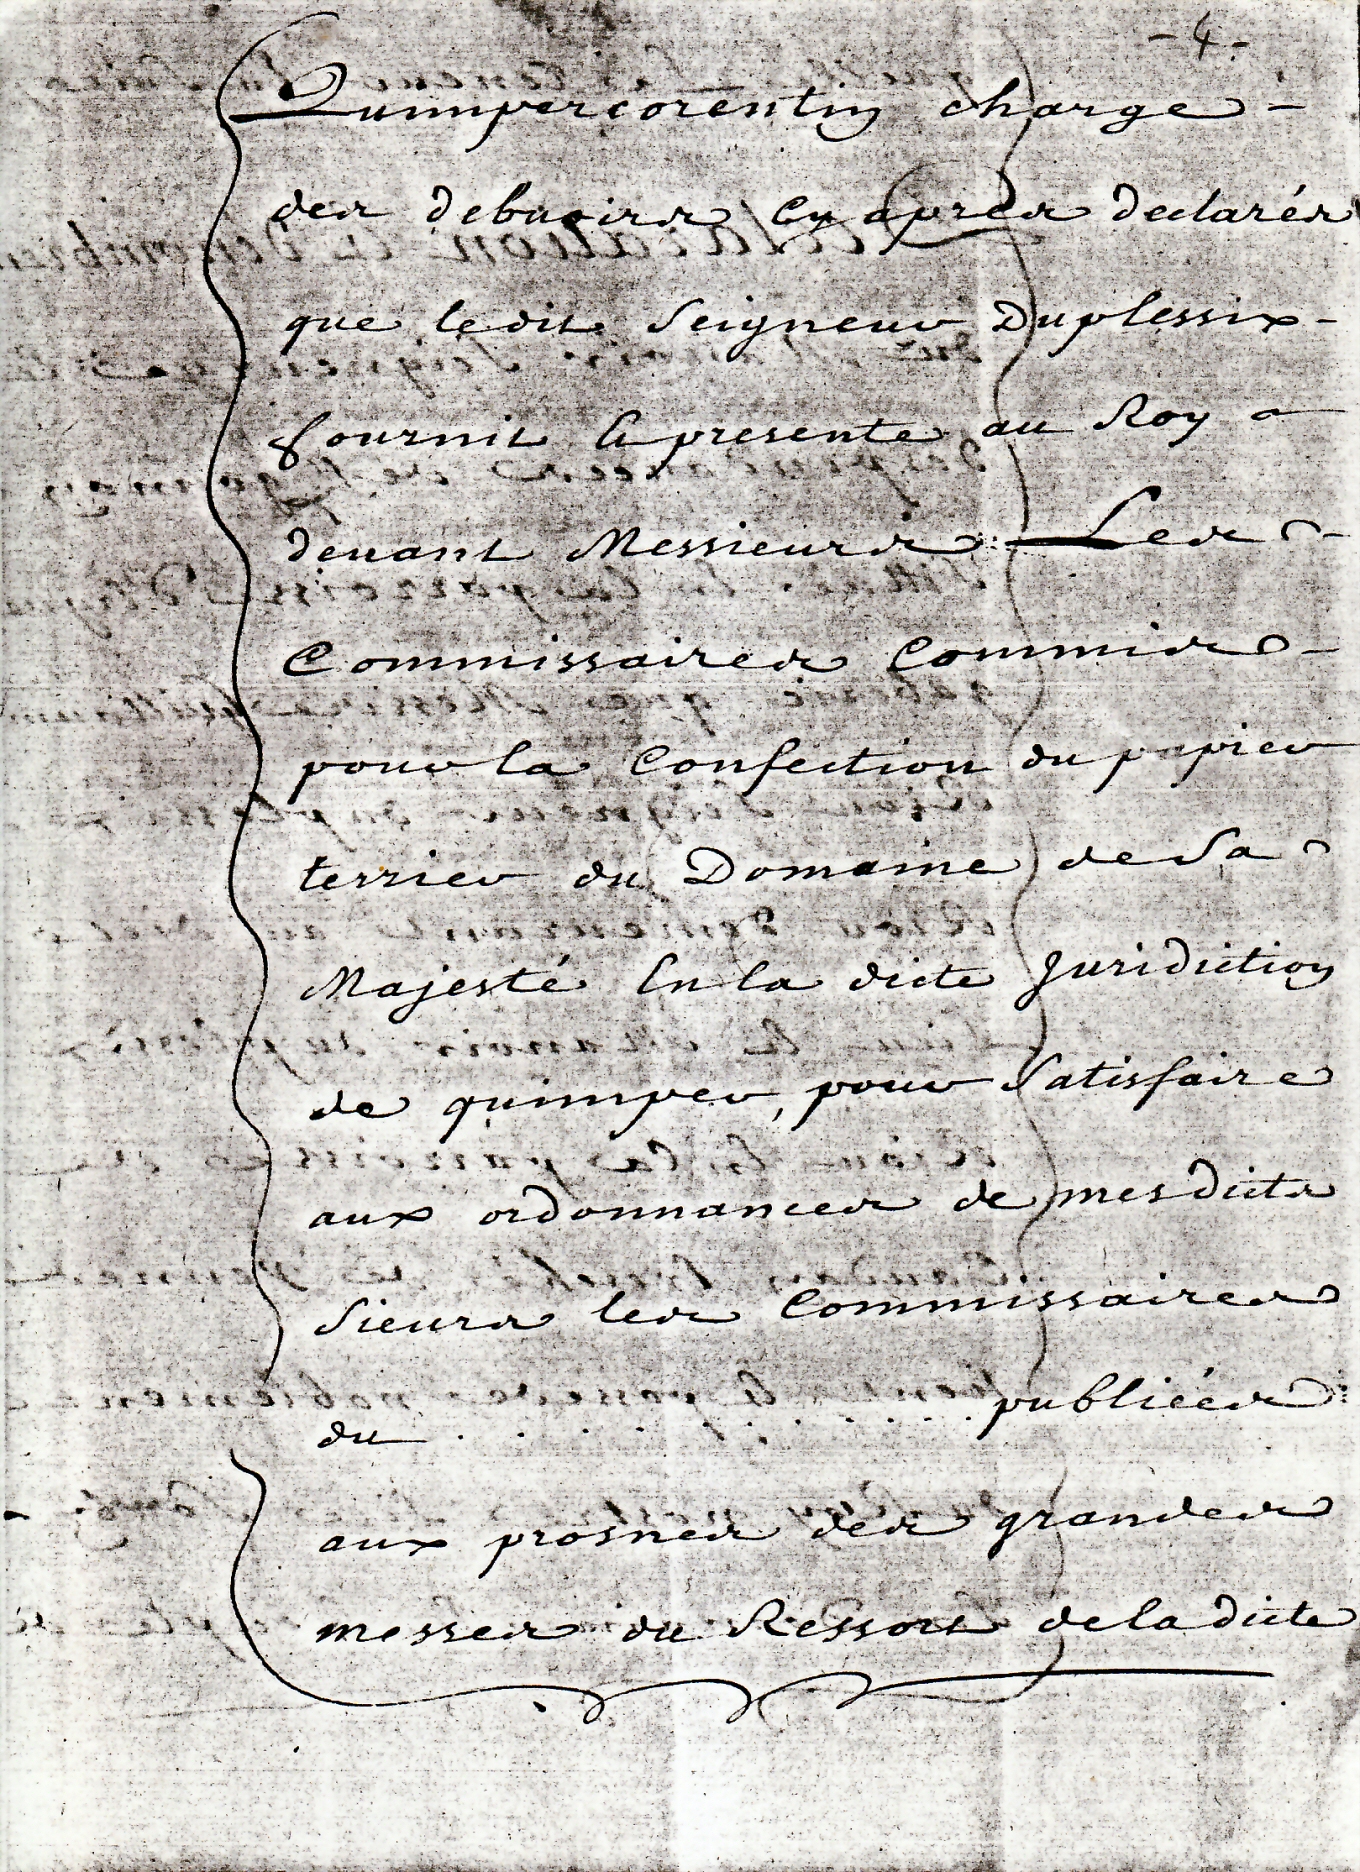 - 4 -
Quimpercorentin charge -
des debuoirs cy apres declarés
que ledit Seigneur Duplessix -
fournit & presente au Roy
deuant Messieurs Les
Commissaires Commis -
pour la Confection du papier
terrier du Domaine de Sa
Majesté En la dicte Juridiction
de quimper, pour Satisfaire
aux ordonnances de mesdicts
Sieurs les Commissaires
du . . . . . . . . . publiées
aux prosnes des grandes
messes du Ressort de la dicte